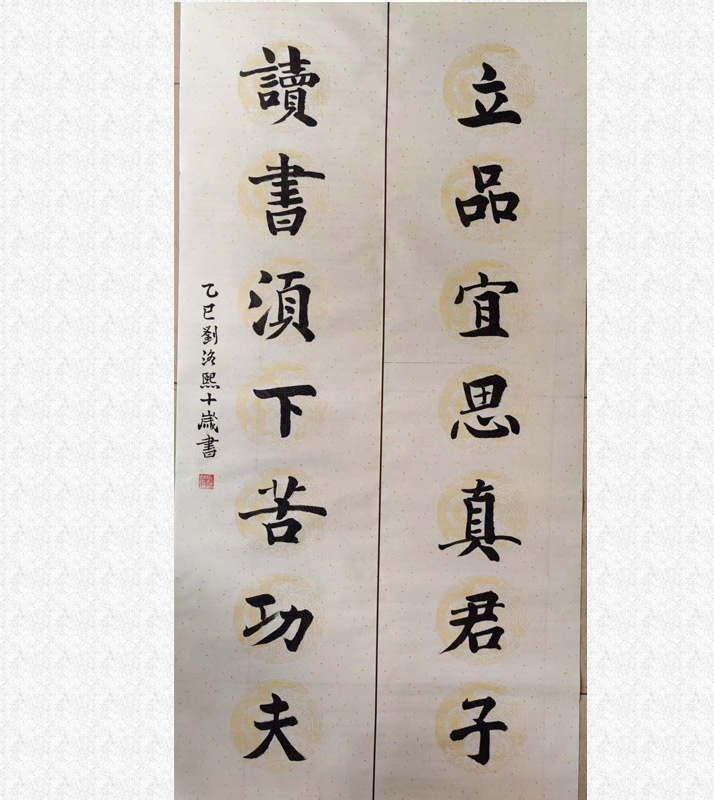 立品宜思真君子
讀書須下苦功夫
乙巳劉洛熙十歲書